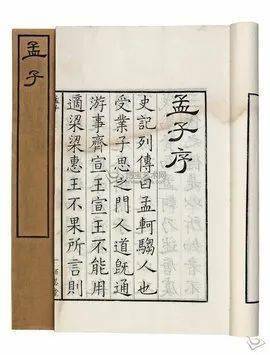 孟子
孟子序
史記列傳曰孟軻騶人也
受業子思之門人道既通
游事齊宣王宣王不能用
適梁梁惠王不果所言則